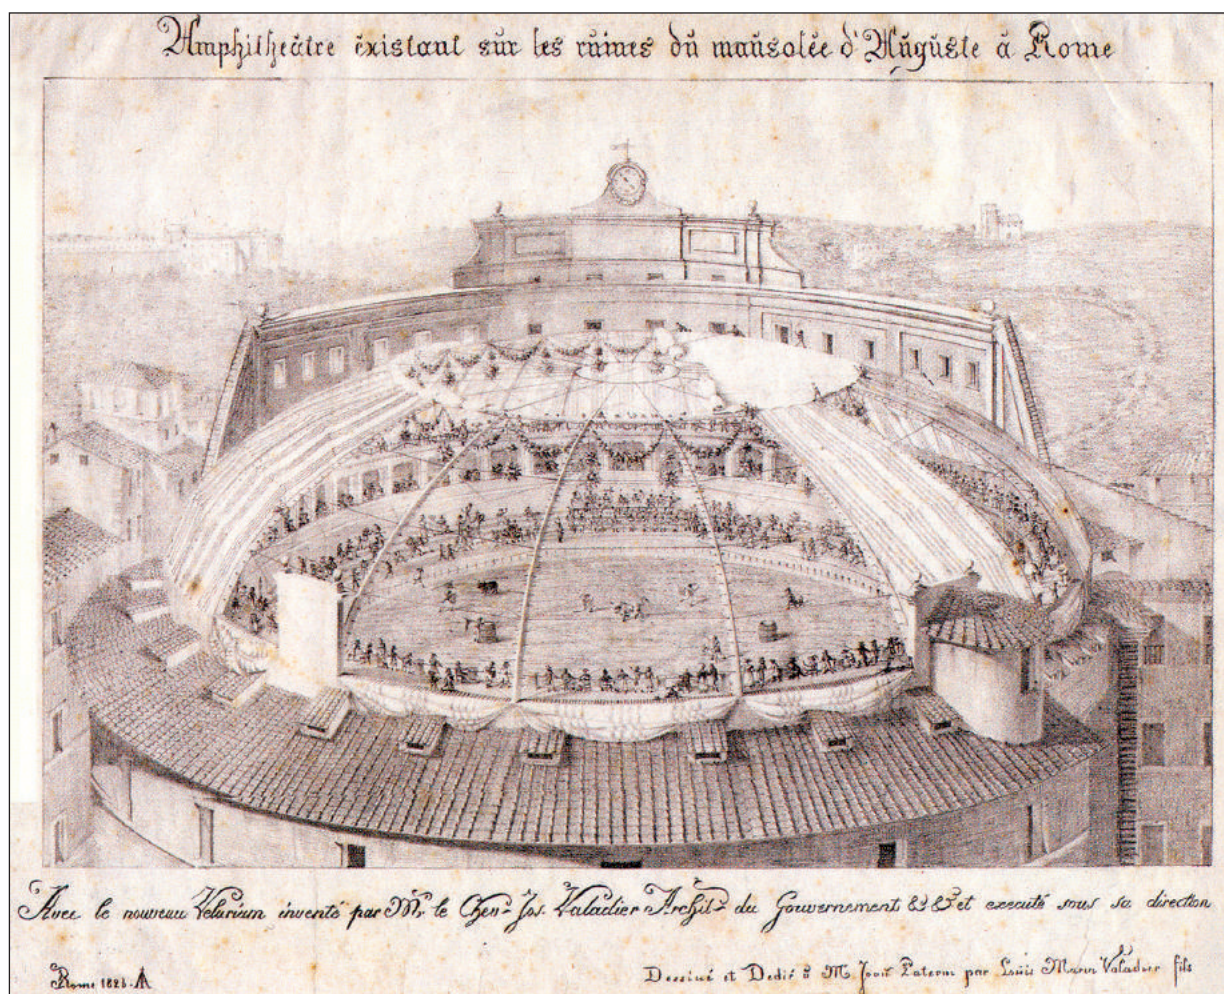 Amphithéâtre éxistant sur les ruines du mausolée d'Auguste à Rome
Avec le nouveau Velarium inventé par Mr. le Chev. Jos. Valadier Archit. du Gouvernement && et executé sous sa direction
Rome 182
Dessiné et Dedié à M. Paterni par Louis Marie Valadier fils